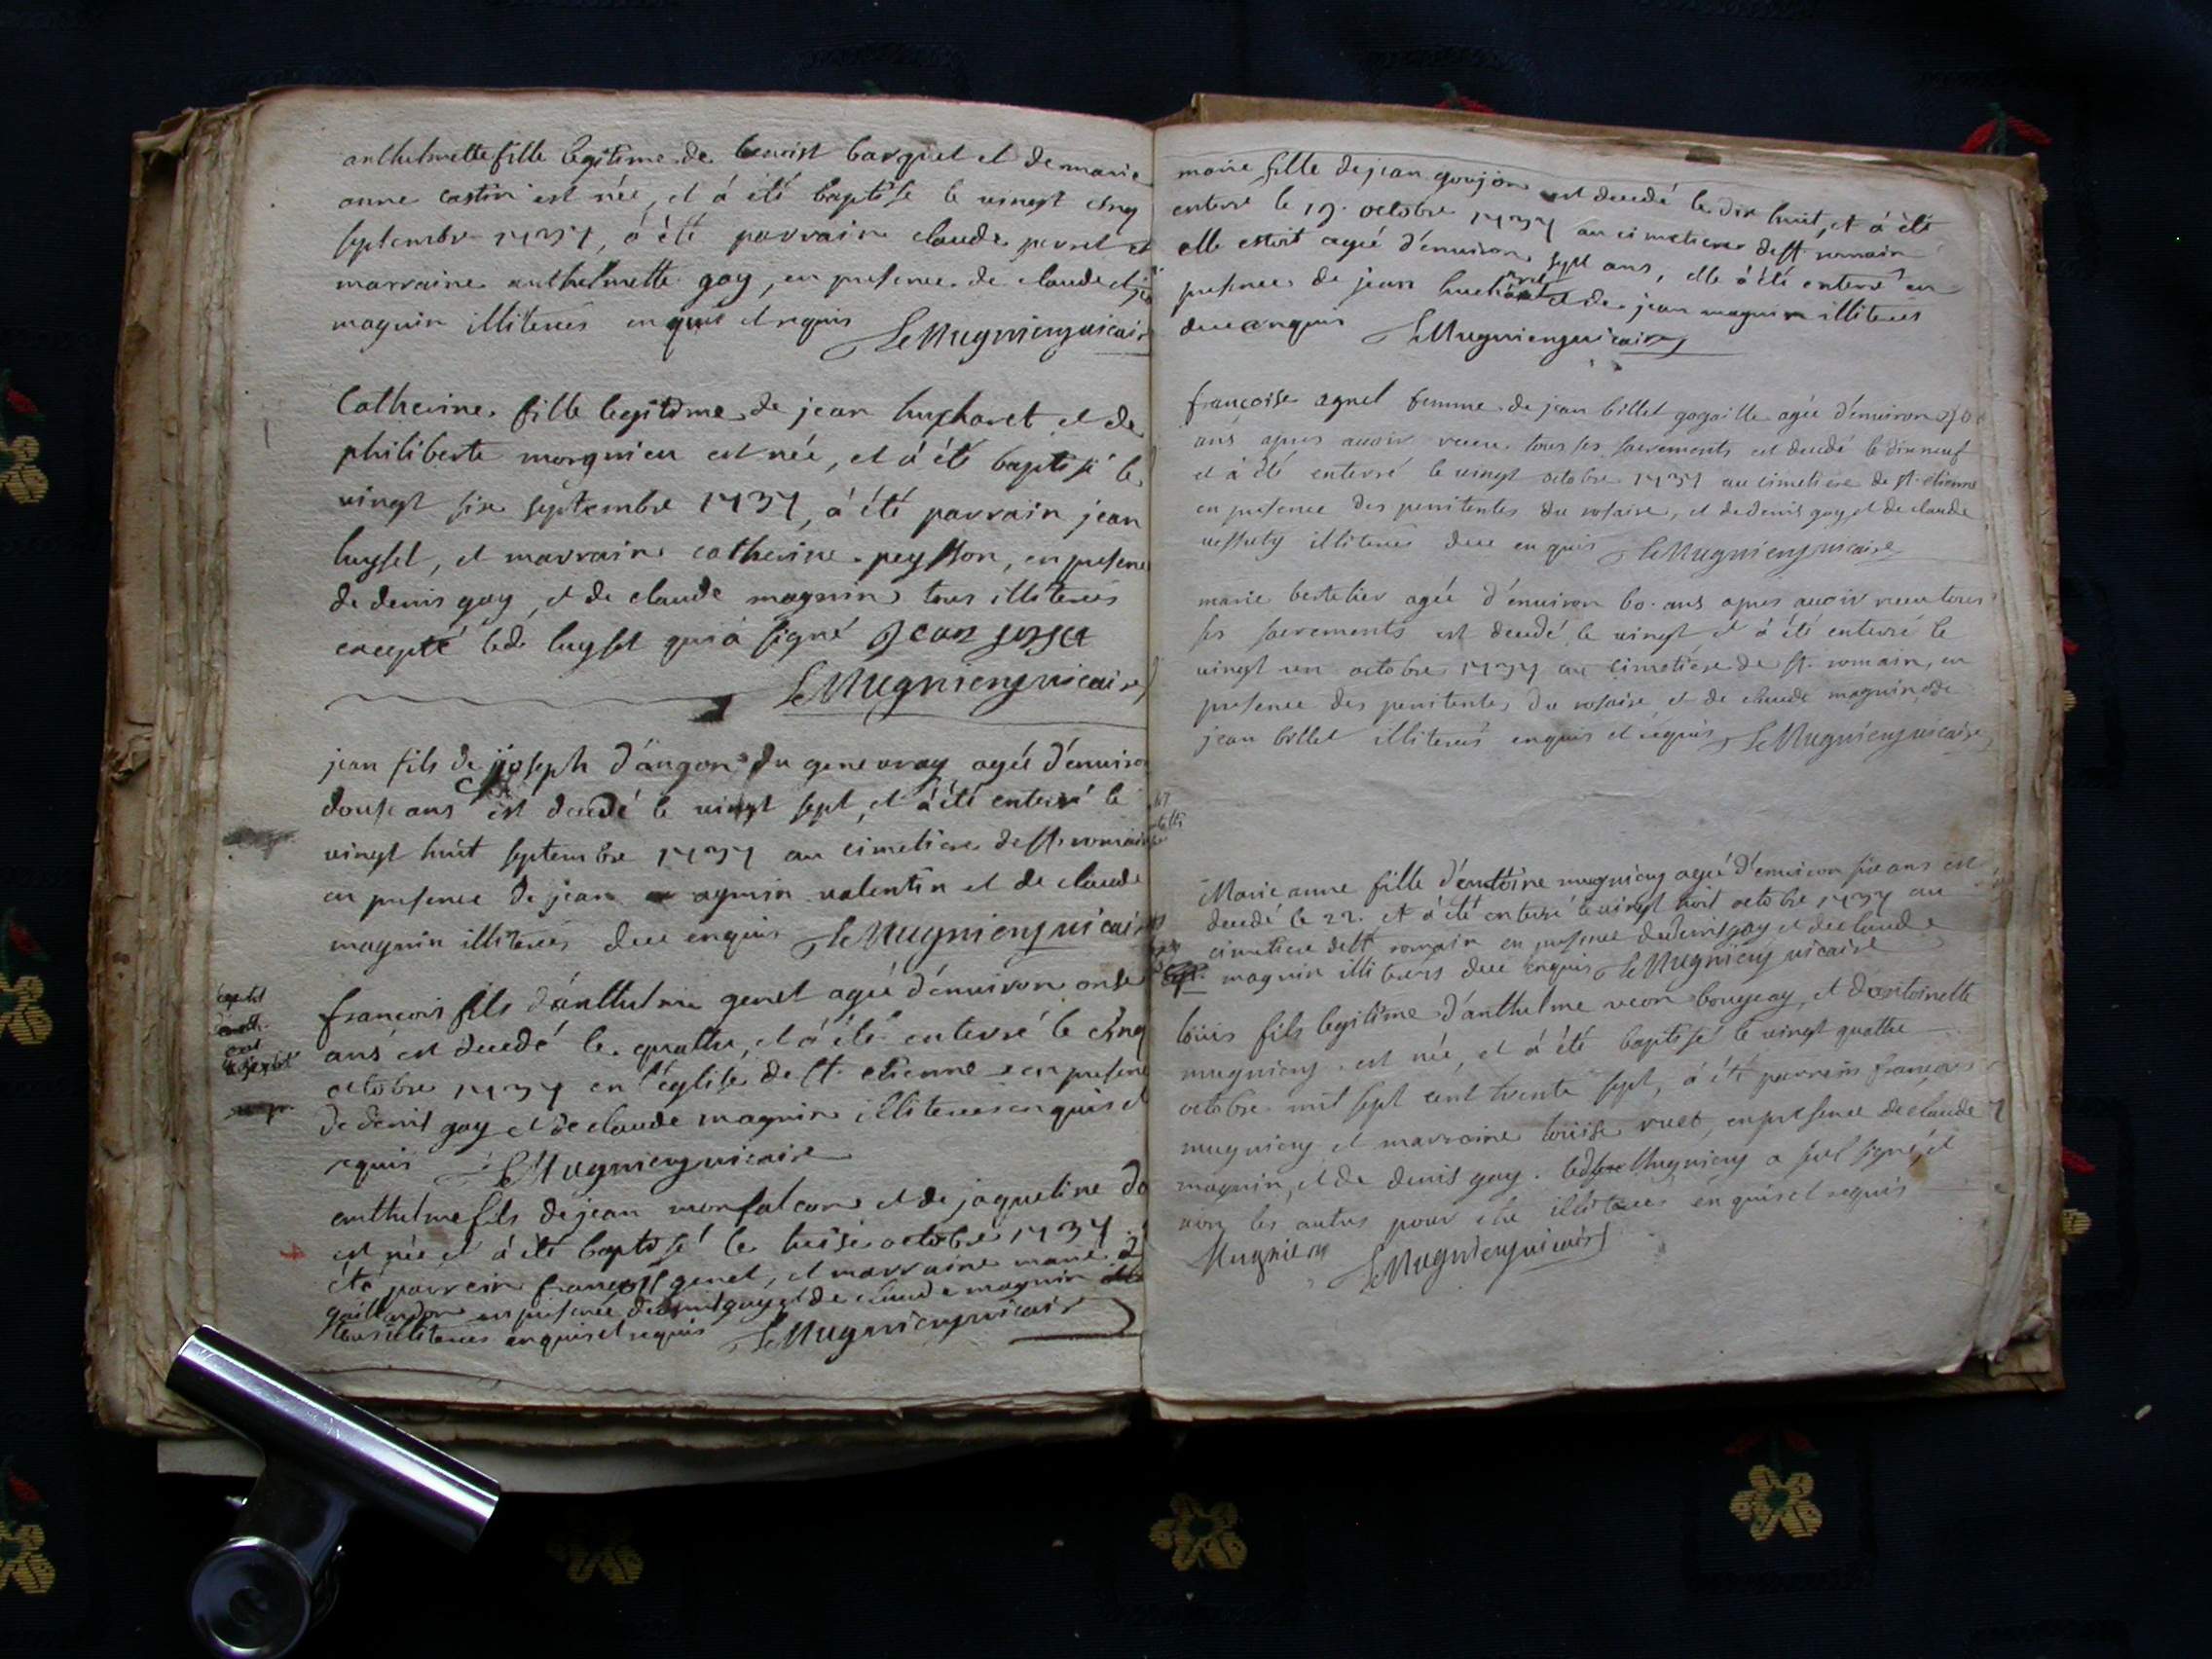 anthelmette fille legitime de benoist barquet et de marie
anne castin est née, et á été baptisé le vingt cinq
septembre 1737, á été parrain claude perret et
marraine anthelmette gay, en presence de claude et
magnin illiterés enquis et requis LeMugnieng vicair
Catherine fille legitime de jean hucharet et de
philiberte morgnieu est née, et á été baptisé le
vingt six septembre 1737, á été parrain jean
luysset, et marraine catherine peysson, en presence
de denis gay, et de claude magnin tous illiterés
excepté led. luysset qui á signé jean
LeMugnieng vicaire
jean fils de joseph d'angon du genevray agée d'environ
douse ans est decedé le vingt sept, et á été enterré le
vingt huit septembre 1737 au cimetiere de st. romain
en presence de jean agnin valentin et de claude
magnin illiterés due enquis LeMugnieng vicair
françois fils d'anthelme genet agée d'environ onse
ans est decedé le quattre, et á été enterré le cinq
octobre 1737 en l'église de st. etienne en presence
de denis gay et de claude magnin illiterés enquis et
requis LeMugnieng vicaire
anthelme fils de jean monfalcon et de jaqueline
est née et á été baptisé le treise octobre 1737
été parrain françois genet, et marraine marie
gaillardon en presence de denis gay et de claude magnin
tous illiterés enquis et requis LeMugnieng vicair
marie fille de jean goujon est decedé le dix huit, et á été
enterré le 19. octobre 1737 au cimetiere de st. romain
elle estoit agée d'environ sept ans, elle á été enterré en
presence de jean hucharet et de jean magnin illiterés
due enquis LeMugnieng vicaire
françoise agnel femme de jean billet gogaille agée d'environ
ans apres avoir receu tous ses sacrements est decedé le dix neuf
et á été enterré le vingt octobre 1737 au cimetiere de st. etienne
en presence des penitentes du rosaire, et de denis gay et de claude
illiterés due enquis LeMugnieng vicaire
marie bertelier agée d'environ 60. ans apres avoir receu tous
ses sacrements est decedé le vingt et á été enterré le
vingt un octobre 1737 au cimetiere de st. romain, en
presence des penitentes du rosaire et de claude magnin et de
jean billet illiterés enquis et requis LeMugnieng vicaire
Marie anne fille d'antoine mugnieng agée d'environ six ans est
decedé le 22. et á été enterré le vingt huit octobre 1737 au
cimetiere de st. romain en presence de denis gay et de claude
magnin illiterés due enquis LeMugnieng vicaire
loüis fils legitime d'anthelme veon bougeay, et d'antoinette
mugnieng est née, et á été baptisé le vingt quattre
octobre mil sept cent trente sept, á été parrain françois
mugnieng et marraine loüise ruet, en presence de claude
magnin, et de denis gay. ledit Mugnieng a seul signé, et
non les autres pour etre illiterés enquis et requis
Mugnieng LeMugnieng vicaire